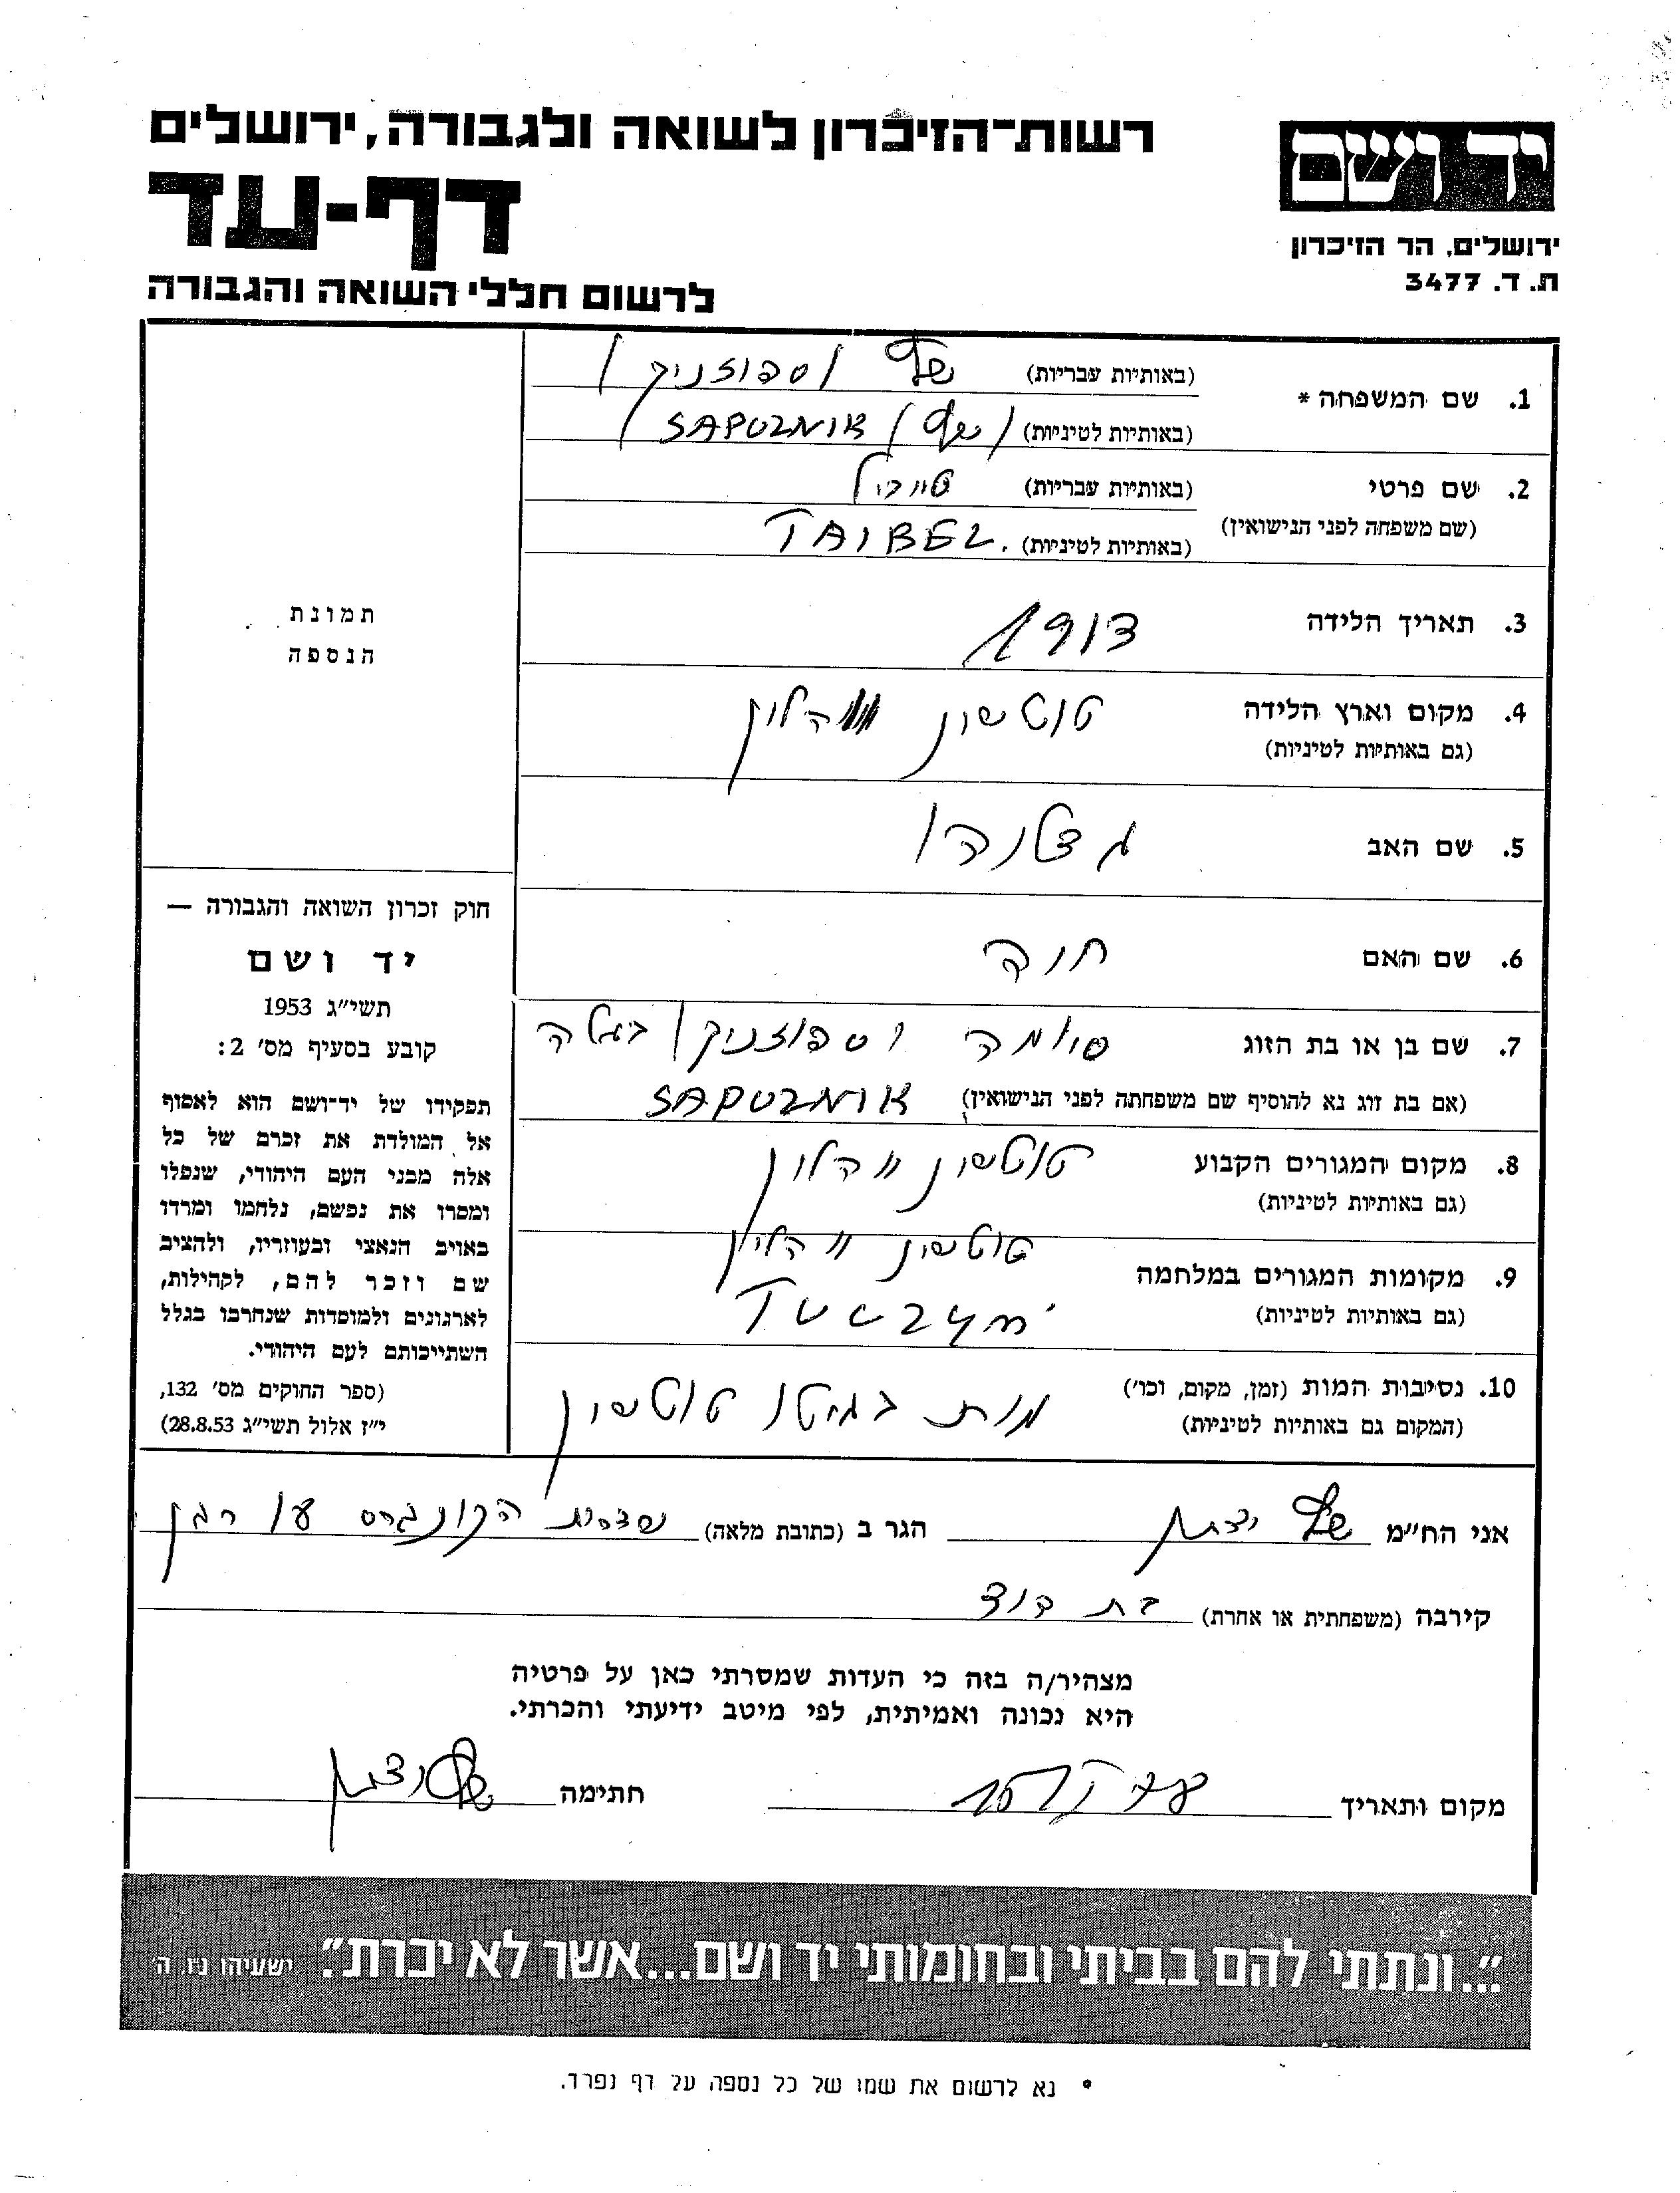 רשות־הזיכרון לשואה ולגבורה, ירושלים
דף-עד
לרשום חללי השואה והגבורה
יד ושם
ירושלים, הר הזיכרון
ת. ד. 3477
1. שם המשפחה * (באותיות עבריות) שץ /ספוזניק/
(באותיות לטיניות) /שץ/ SAPUZNIK
2. שם פרטי (באותיות עבריות) טייבל
(שם משפחה לפני הנישואין) (באותיות לטיניות) TAIBEL
3. תאריך הלידה 1913
4. מקום וארץ הלידה טוטשין ווהלין
(גם באותיות לטיניות)
5. שם האב
6. שם האם חוה
7. שם בן או בת הזוג ספוזניק
(אם בת זוג נא להוסיף שם משפחתה לפני הנישואין) SAPUZNIK
8. מקום המגורים הקבוע טוטשין ווהלין
(גם באותיות לטיניות)
9. מקומות המגורים במלחמה טוטשין ווהלין
(גם באותיות לטיניות) Tuczyn
10. נסיבות המות (זמן, מקום, וכו') מות בגיטו טוטשין
(המקום גם באותיות לטיניות)
תמונת
הנספה
חוק זכרון השואה והגבורה —
יד ושם
תשי"ג 1953
קובע בסעיף מס' 2:
תפקידו של יד־ושם הוא לאסוף
אל המולדת את זכרם של כל
אלה מבני העם היהודי, שנפלו
ומסרו את נפשם, נלחמו ומרדו
באויב הנאצי ובעוזריו, ולהציב
שם וזכר להם, לקהילות,
לארגונים ולמוסדות שנחרבו בגלל
השתייכותם לעם היהודי.
(ספר החוקים מס' 132,
י"ז אלול תשי"ג 28.8.53)
אני הח"מ שץ הגר ב (כתובת מלאה) שדרות הקונגרס
קירבה (משפחתית או אחרת) בת דוד
מצהיר/ה בזה כי העדות שמסרתי כאן על פרטיה
היא נכונה ואמיתית, לפי מיטב ידיעתי והכרתי.
מקום ותאריך חתימה
"...ונתתי להם בביתי ובחומותי יד ושם...אשר לא יכרת". ישעיהו נ"ו, ה'
* נא לרשום את שמו של כל נספה על דף נפרד.